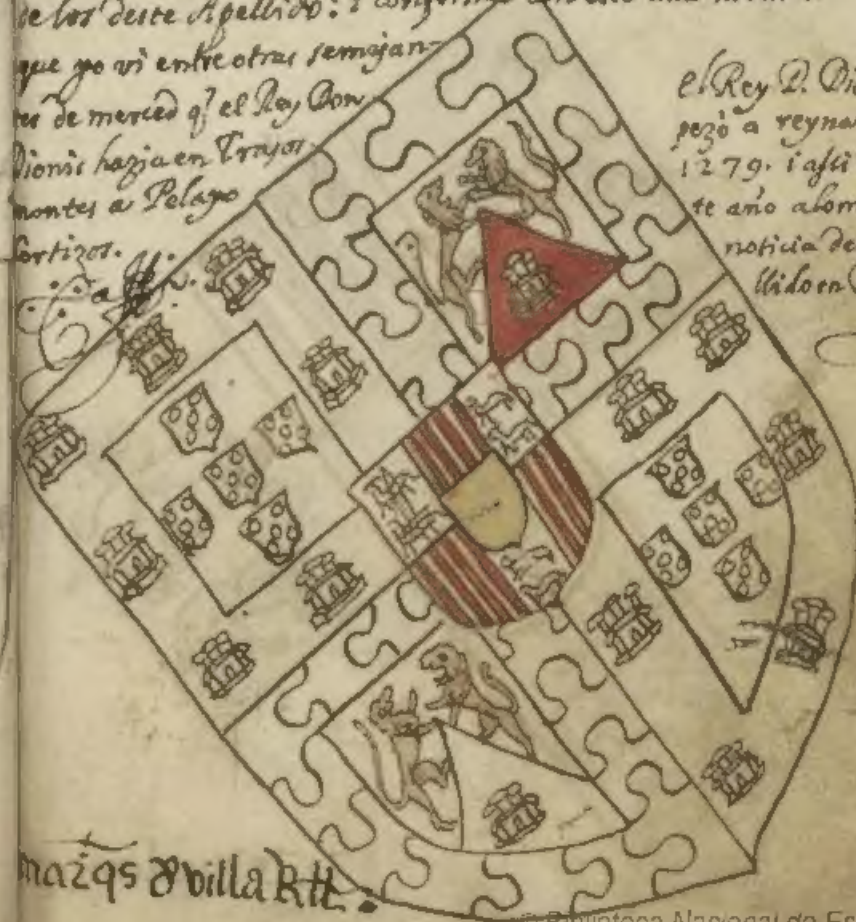 de los deste Apellido: i conforme con esto una
que yo vi entre otras semejan-
tes de merced q̃ el Rey Don
Dionis hazia en Trasos-
montes a Pelayo
Cortizos.
el Rey D. Di
pezò a reyna
1279. i assi
te año
noticia de
llido en
mar̃qs d villa
Biblioteca Nacional de Es